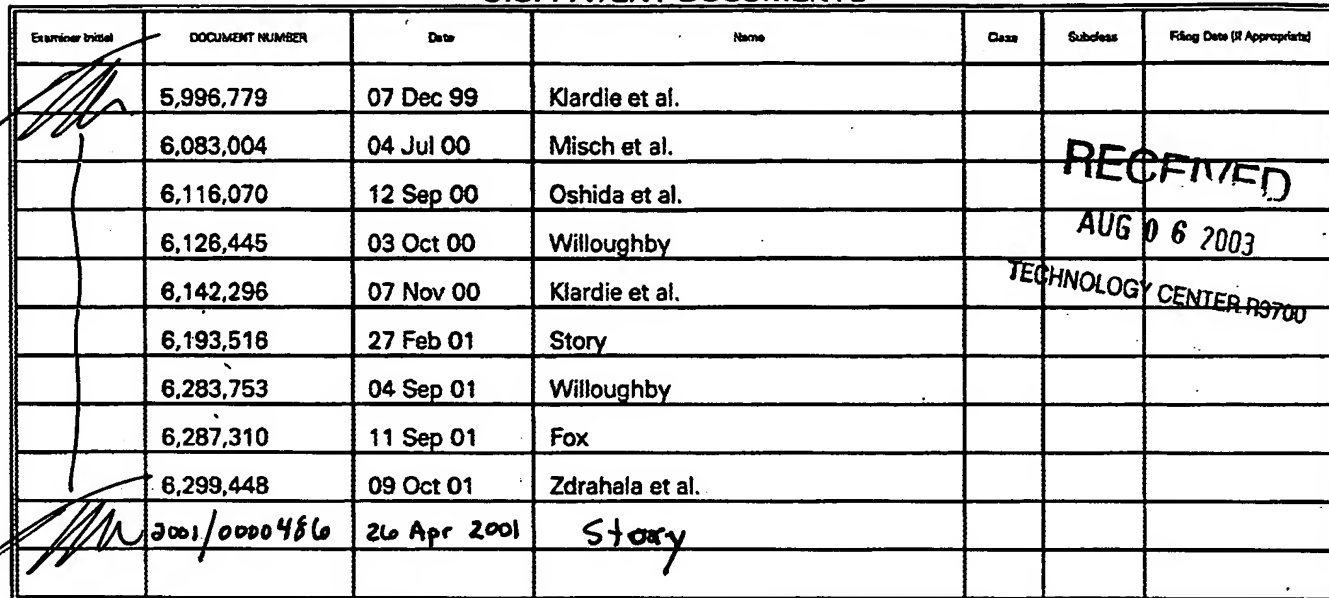 Examiner Initial DOCUMENT NUMBER Date Name Class Subclass Filing Date (If Appropriate)
5,996,779 07 Dec 99 Klardie et al.
6,083,004 04 Jul 00 Misch et al.
6,116,070 12 Sep 00 Oshida et al.
6,126,445 03 Oct 00 Willoughby
6,142,296 07 Nov 00 Klardie et al.
6,193,516 27 Feb 01 Story
6,283,753 04 Sep 01 Willoughby
6,287,310 11 Sep 01 Fox
6,299,448 09 Oct 01 Zdrahala et al.
2001/0000486 26 Apr 2001 Story
RECEIVED
AUG 06 2003
TECHNOLOGY CENTER R3700